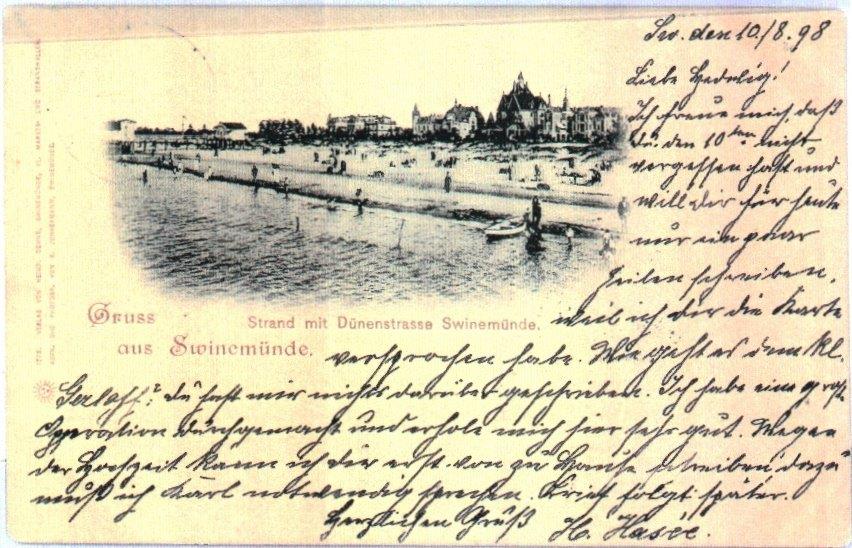 Sw. den 10./8.98
Liebe Hedwig!
Ich freue mich daß
du den 10ten nicht
vergessen hast und
will dir für heute
nur ein paar
Zeilen schreiben,
weil ich dir die Karte
Gruss
aus Swinemünde.
Strand mit Dünenstrasse Swinemünde.
versprochen habe. Wie geht es dem kl.
Gerloff? du hast mir nichts darüber geschrieben. Ich habe eine große
Operation durchgemacht und erhole mich hier sehr gut. Wegen
der Hochzeit kann ich dir erst von zu Hause schreiben dazu
muß ich Karl notwendig sprechen. Brief folgt später.
Herzlichen Gruß H. Hasée.